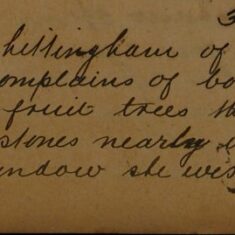 3
hittingham of
omplains of bo
fruit trees th
stones nearby
indow she wis